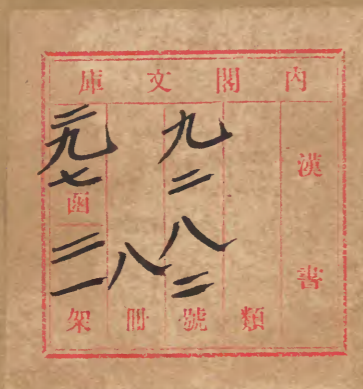 内閣文庫
漢書
類
九二八二號
八冊
二九七函
三一架